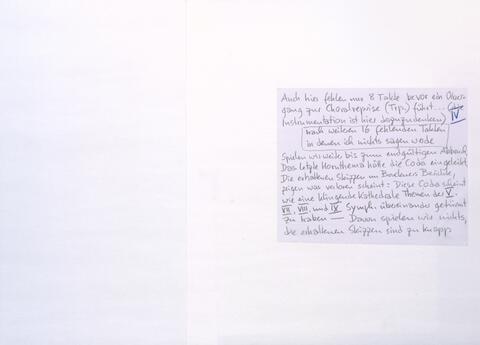 Auch hier fehlen nur 8 Takte bevor ein Über-
gang zur Choralreprise (Trp.) führt... (die
Instrumentation ist hier dazuzudenken) IV
nach weiteren 16 fehlenden Takten
in denen ich nichts sagen werde
Spielen wir weiter bis zum endgültigen Abbruch
Das letzte Hornthema hätte die Coda eingeleitet
Die erhaltenen Skizzen in Bruckners Bleistift,
zeigen was verloren scheint: Diese Coda scheint
wie eine klingende Kathedrale Themen der V.
VII, VIII, und IX Symph. übereinander getürmt
zu haben — Davon spielen wir nichts,
die erhaltenen Skizzen sind zu knapp